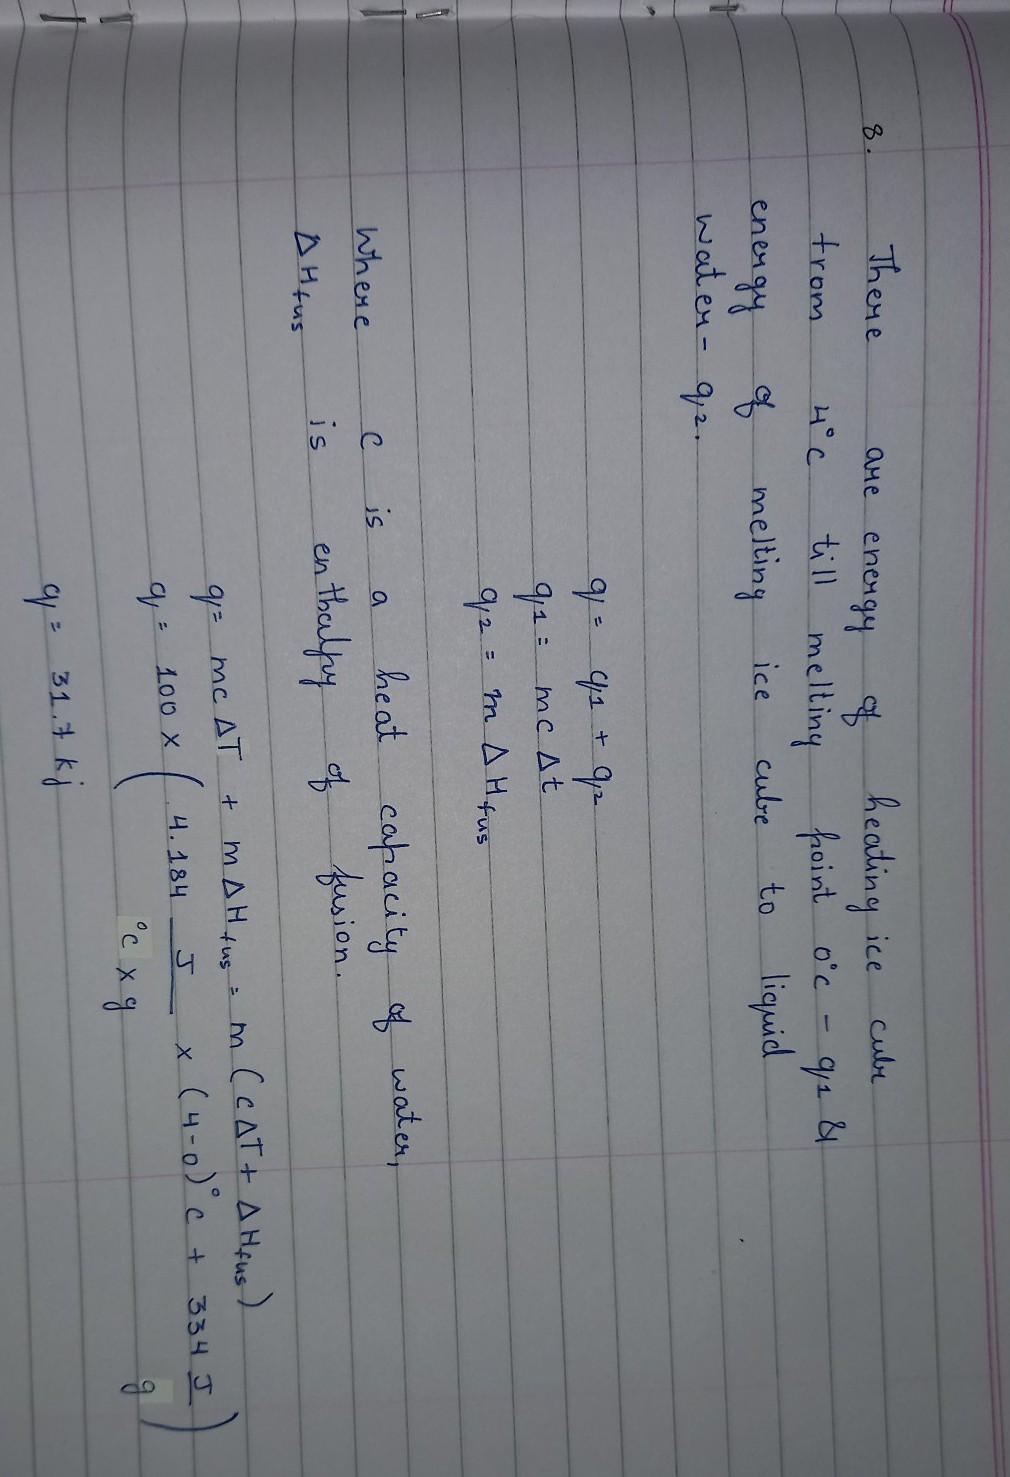 8. There are energy of heating ice cube
from 4°c till melting point 0°c - q1 &
energy of melting ice cube to liquid
water - q2.
q = q1 + q2
q1 = mc Δt
q2 = m ΔHfus
Where C is a heat capacity of water,
ΔHfus is enthalpy of fusion.
q = mc ΔT + m ΔHfus = m (c ΔT + ΔHfus)
q = 100 × ( 4.184 J / °c × g × (4-0)°c + 334 J / g )
q = 31.7 kj